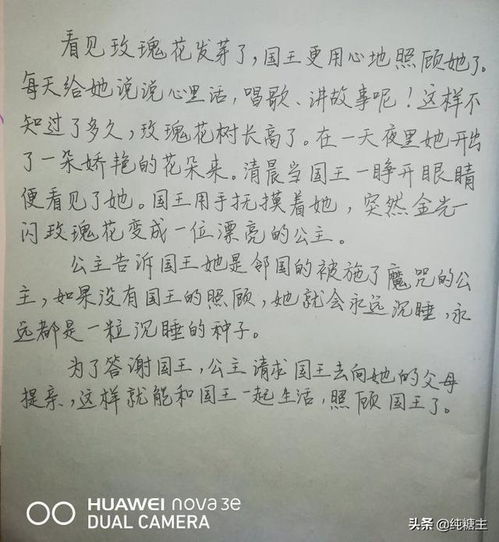 看见玫瑰花发芽了，国王更用心地照顾她了。
每天给她说说心里话，唱歌、讲故事呢！这样不
知过了多久，玫瑰花树长高了。在一天夜里她开出
了一朵娇艳的花朵来。清晨当国王一睁开眼睛
便看见了她。国王用手抚摸着她，突然金光一
闪玫瑰花变成一位漂亮的公主。
公主告诉国王她是邻国的被施了魔咒的公
主，如果没有国王的照顾，她就会永远沉睡，永
远都是一粒沉睡的种子。
为了答谢国王，公主请求国王去向她的父母
提亲，这样就能和国王一起生活，照顾国王了。
HUAWEI nova 3e
DUAL CAMERA
头条 @纯糖主